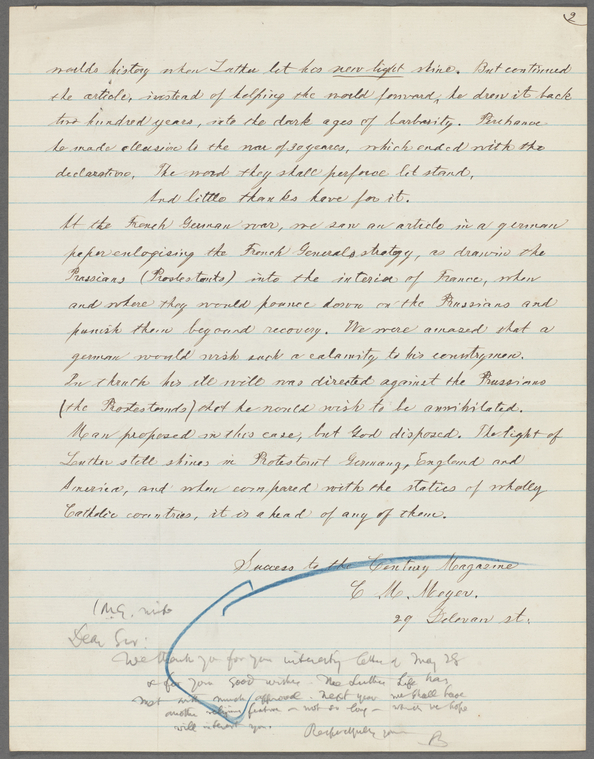 2
worlds history when Luther let his new light shine. But continued
the article, instead of helping the world forward, he drew it back
two hundred years, into the dark ages of barbarity. Perchance
he made allusion to the war of 30 years, which ended with the
declaration. The word they shall perforce let stand,
And little thanks have for it.
At the French German war, we saw an article in a german
paper eulogising the French Generals strategy, as drawin the
Prussians (Protestants) into the interior of France, when
and where they would pounce down on the Prussians and
punish them beyound recovery. We were amazed that a
german would wish such a calamity to his countrymen.
In thruth his ill will was directed against the Prussians
(the Protestands) that he would wish to be annihilated.
Man proposed in this case, but God disposed. The light of
Luther still shines in Protestent Germany, England and
America, and when compared with the statics of wholly
Catholic countries, it is ahead of any of them.
Success to the Century Magazine
C M. Meyer.
29 Delevan st.
Dear Sir:
We thank you for your interesting letter of May 28
& for your good wishes. The Luther Life has
met with much approval. Next year we shall have
another religious feature – not so long – which we hope
will interest you.
Respectfully yours
B